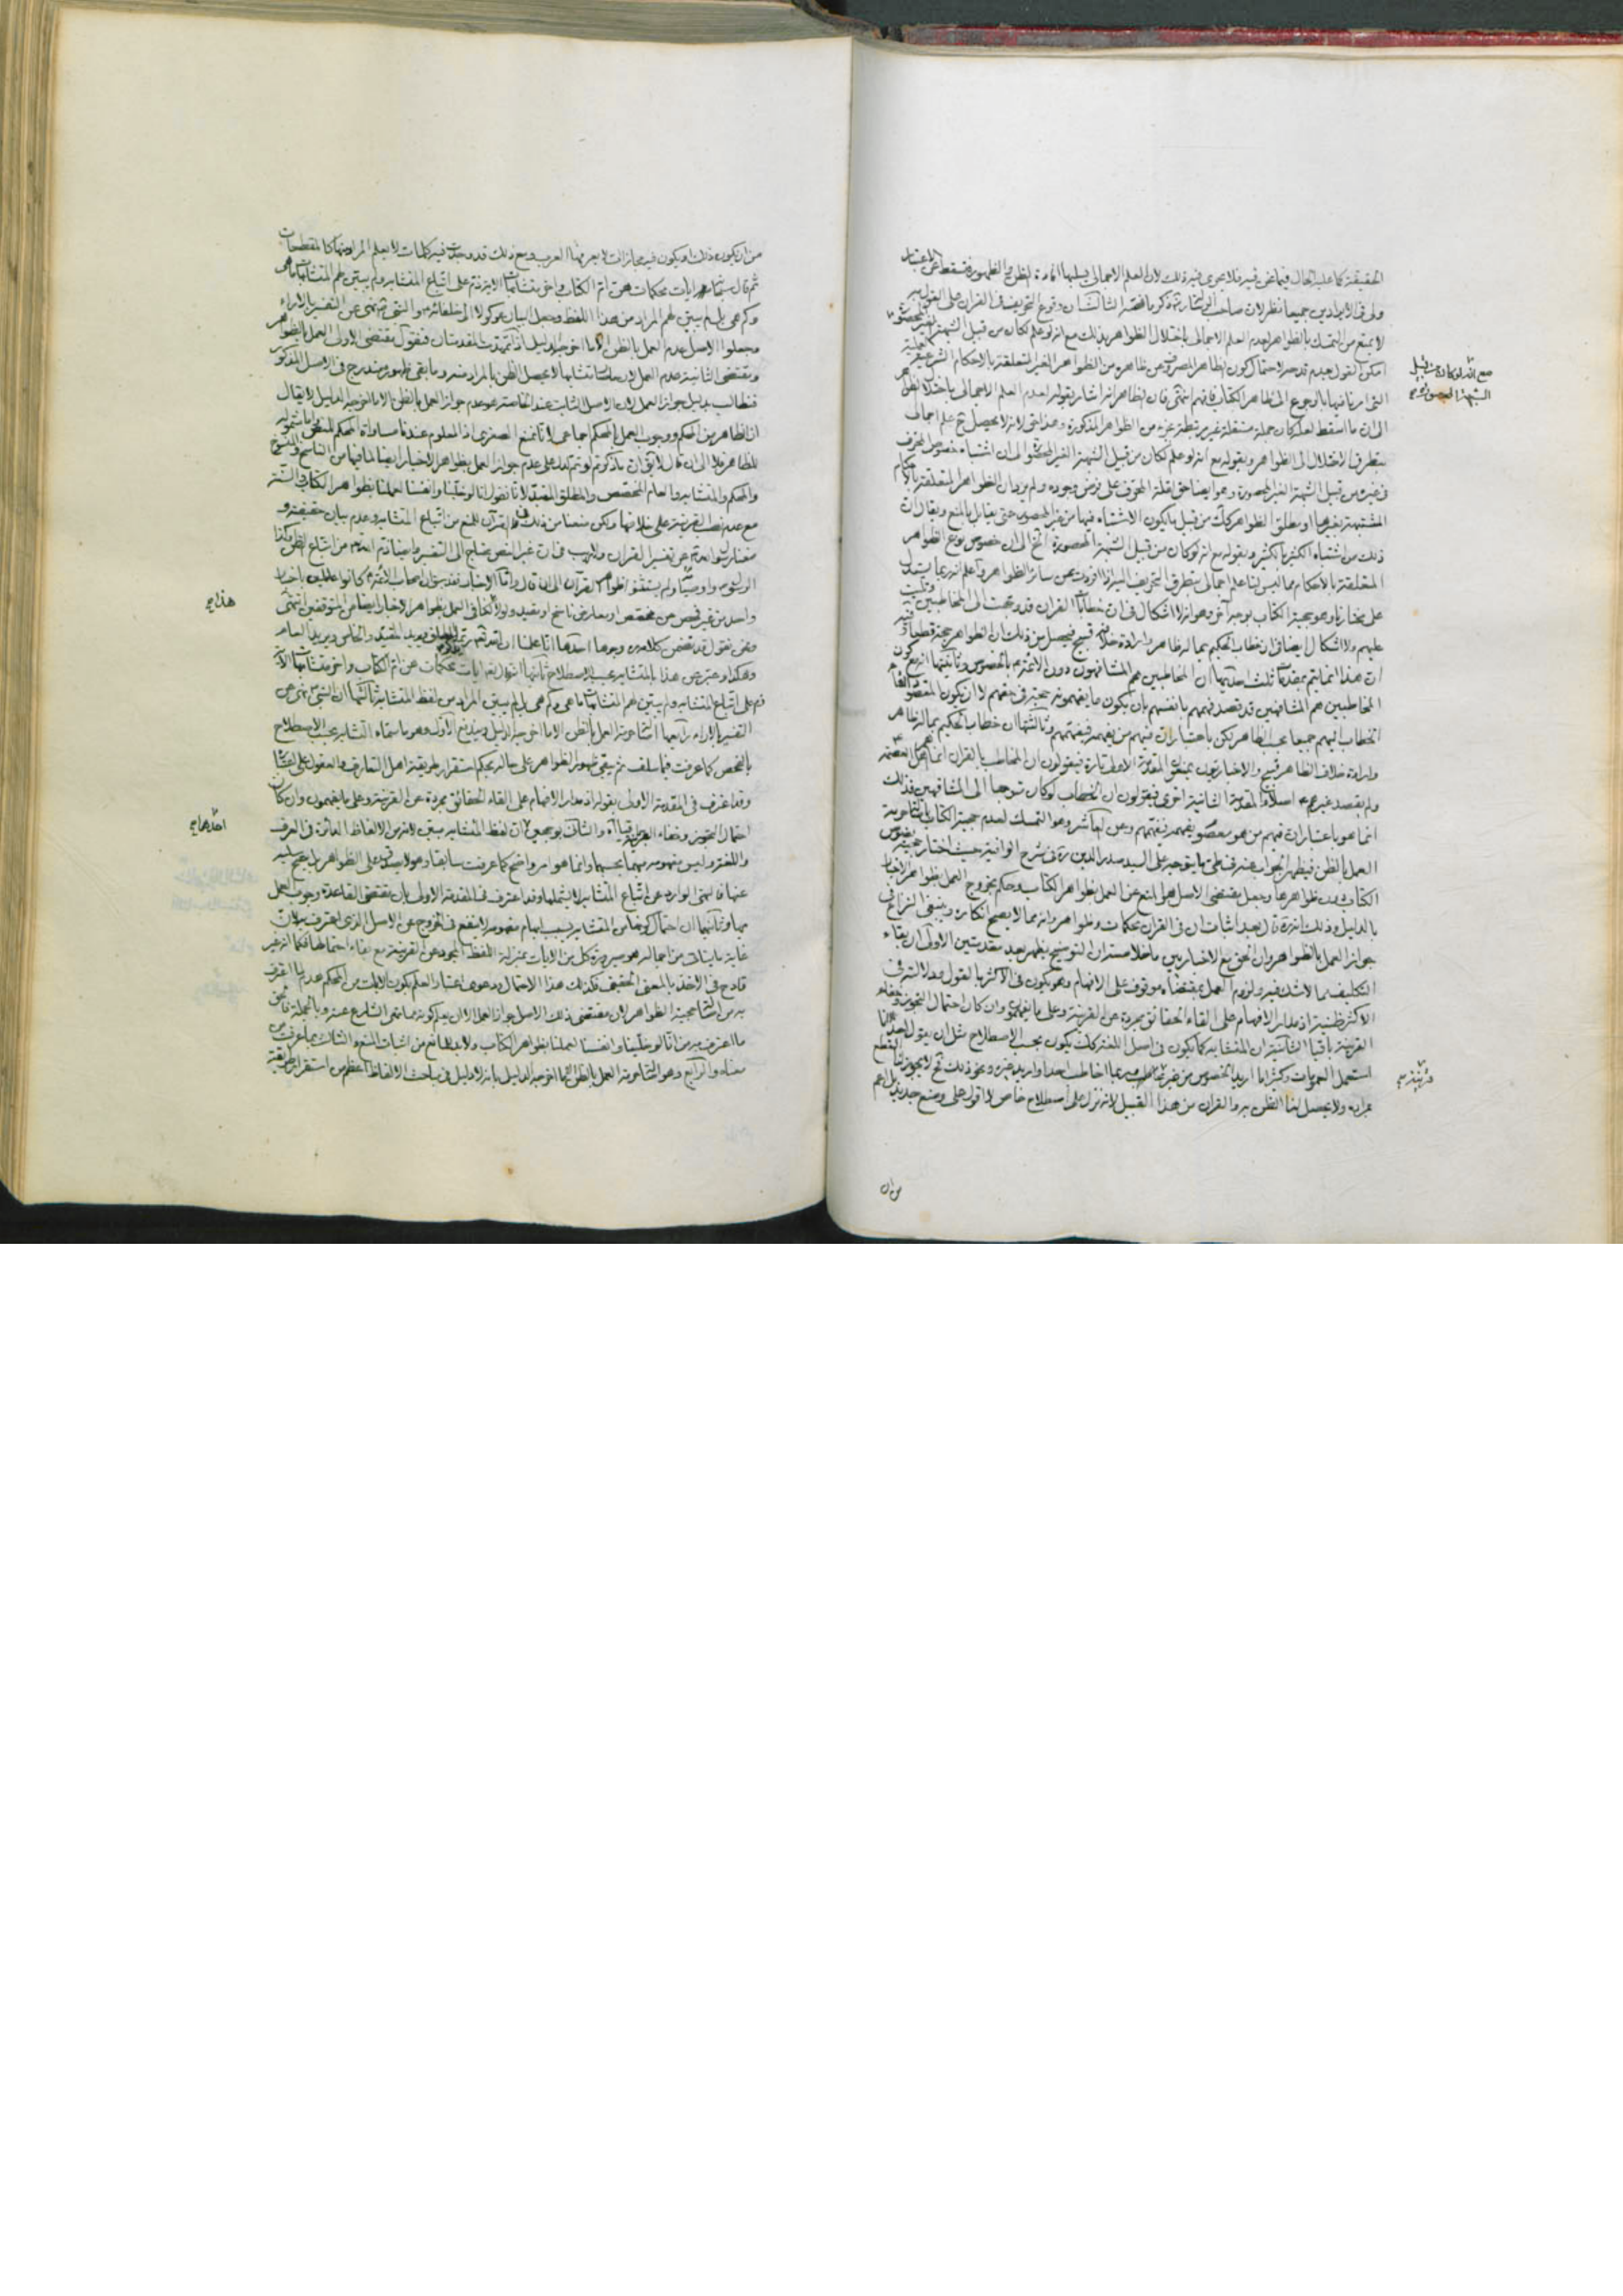 الحقيقة كما عليه الحال فيما نحن فيه فلا يجرى فيه ذلك لان العلم الاجمالى
وفى الايرادين جميعا نظر لان صاحب وقوع التحريف فى القران على القول به
لا يمنع من التمسك بالظواهر لعدم العلم الاجمالى باختلال الظواهر بذلك مع انه لو علم لكان من قبيل الشبهة الغير المحصورة
امكن القول بعدم قدحه لاحتمال كون الظاهر المصروف عن ظاهره من الظواهر الغير المتعلقة بالاحكام الشرعية العملية
التى امرنا فيها بالرجوع الى ظاهر الكتاب فافهم انتهى فان الظاهر انه اشار بقوله لعدم العلم الاجمالى باختلال الظواهر
الى ان ما اسقط لعله كان جملة مستقلة غير مرتبطة بغيره من الظواهر المذكورة و لانه لا يحصل ح علم اجمالى
بتطرق الاختلال الى الظواهر وبقوله مع انه لو علم لكان من قبيل الشبهة الغير المحصورة الى ان اشتباه خصوص المحرف
فى غيره من قبيل الشبهة الغير المحصورة وهو ايضا حق لقلة المحرف على فرض وجوده ولم يرد ان الظواهر المتعلقة بالاحكام
المشتبهة بغيرها او مطلق الظواهر من قبيل ما يكون الاشتباه فيها من غير المحصور حتى يقابل بالمنع ويقال ان
ذلك من اشتباه الكثير بالكثير وبقوله مع انه لو كان من قبيل الشبهة المحصورة الخ الى ان خصوص نوع الظواهر
المتعلقة بالاحكام مما ليس لنا علم اجمالى بتطرق التحريف اليه اذا افردت عن سائر الظواهر واعلم انه ربما يستدل
على مختارنا وهو حجية الكتاب بوجه اخر وهو انه لا اشكال فى ان خطابات القران قد وجهت الى المخاطبين وتليت
عليهم ولا اشكال ايضا فى ان خطاب الحكيم بما له ظاهر وارادة خلافه قبيح فيحصل من ذلك ان الظواهر حجة قطعا وفيه
ان هذا انما يتم بمقدمات ثلث احديها ان المخاطبين هم المشافهون دون الائمة ع بالخصوص وثانيتها ان يكون
المخاطبين هم المشافهين قد قصد فهمهم بانفسهم بان يكون ما يفهمونه حجة فى حقهم لا ان يكون المقصود
الخطاب اليهم جميعا بحسب الظاهر لكن باعتبار ان فيهم من يفهمه فيفهمهم وثالثتها ان خطاب الحكيم بما له ظاهر
وارادة خلاف الظاهر قبيح والاخباريون يمنعون المقدمة الاولى تارة فيقولون ان المخاطب بالقران انما هم اهل العصمة
ولم يقصد غيرهم اصلا والمقدمة الثانية اخرى فيقولون ان الخطاب لو كان متوجها الى المشافهين فذلك
انما هو باعتبار ان فيهم من هو معصوم يفهمه فيفهمهم وعن العاشر وهو التمسك لعدم حجية الكتاب
العمل بالظن فيظهر الجواب عنه فى طى ما يتوجه على السيد صدر الدين ره فى شرح الوافية حيث اختار حجية نصوص
الكتاب دون ظواهرها وجعل مقتضى الاصل هو المنع عن العمل بظواهر الكتاب وحكم بخروج العمل بظواهر الاخبار
بالدليل وذلك انه ره قال بعد اثبات ان فى القران محكمات وظواهر وانه مما لا يصح انكاره وينبغى النزاع فى
جواز العمل بالظواهر وان الحق مع الاخباريين ما خلاصته ان التوضيح يظهر بعد مقدمتين الاولى ان بقاء
التكليف مما لا شك فيه ولزوم العمل بمقتضاه موقوف على الافهام وهو يكون فى الاكثر بالقول ودلالته فى
الاكثر ظنية اذ مدار الافهام على القاء الحقائق مجردة عن القرينة وعلى ما يفهمون وان كان احتمال التجوز وخفاء
القرينة باقيا الثانية ان المتشابه كما يكون فى اصل اللغة كك يكون بحسب الاصطلاح مثل ان يقول احد انا
استعمل العمومات وكثيرا ما اريد الخصوص من غير قرينة وربما اخاطب احدا واريد غيره ونحو ذلك فح لا يجوز لنا القطع
بمراده ولا يحصل لنا الظن به والقران من هذا القبيل لانه نزل على اصطلاح خاص لا اقول على وضع جديد بل اعم
مع انه لو كان من قبيل
الشبهة المحصورة
قرينة صح
من ان
من ان يكون ذلك او يكون فيه مجازات لا يعرفها العرب ومع ذلك قد وجدت فيه كلمات لا يعلم المراد منها كالمقطعات
ثم قال سبحانه منه ايات محكمات هن ام الكتاب واخر متشابهات الاية ذم على اتباع المتشابه ولم يبين لهم المتشابهات ما هى
وكم هى بل لم يبين لهم المراد من هذا اللفظ وجعل البيان موكولا الى خلفائه والنبى ص نهى عن التفسير بالاراء
وجعلوا الاصل عدم العمل بالظن الا ما اخرجه الدليل اذا تمهدت المقدمتان فنقول مقتضى الاولى العمل بالظواهر
ومقتضى الثانية عدم العمل لان ما صار متشابها لا يحصل الظن بالمراد منه وما بقى ظهوره مندرج فى الاصل المذكور
فنطالب بدليل جواز العمل لان الاصل الثابت عند الخاصة هو عدم جواز العمل بالظن الا ما اخرجه الدليل لا يقال
ان الظاهر من المحكم ووجوب العمل بالمحكم اجماعى لانا نمنع الصغرى اذ المعلوم عندنا مساواة المحكم للنص واما شموله
للظاهر فلا الى ان قال لا يقال ان ما ذكرتم لو تم لدل على عدم جواز العمل بظواهر الاخبار ايضا لما فيها من الناسخ والمنسوخ
والمحكم والمتشابه والعام المخصص والمطلق المقيد لانا نقول انا لو خلينا وانفسنا لعملنا بظواهر الكتاب والسنة
مع عدم نصب القرينة على خلافها ولكن منعنا من ذلك فى القرآن للمنع من اتباع المتشابه وعدم بيان حقيقته و
منعنا رسول الله ص عن تفسير القران ولا ريب فى ان غير النص محتاج الى التفسير وايضا ذم الله تعالى من اتباع الظن وكذا
الرسول ص واوصيائه ولم يستثنوا ظواهر القرآن الى ان قال واما الاخبار فقد سبق ان اصحاب الائمة ع كانوا عاملين باخبار
واحد من غير فحص عن مخصص او معارض ناسخ او مقيد ولولا هذا لكنا فى العمل بظواهر الاخبار ايضا من المتوقفين انتهى
ونحن نقول قد تضمن كلامه ره وجوها احدها انا علمنا ان الله تعالى يطلق ويريد المقيد والخاص ويريد العام
وهكذا وعبر عن هذا بالمتشابه بحسب الاصطلاح ثانيها انه قال تعالى منه ايات محكمات هن ام الكتاب واخر متشابهات الاية
ذم على اتباع المتشابه ولم يبين لهم المتشابهات ما هى وكم هى بل لم يبين المراد من لفظ المتشابه ثالثها ان النبى ص نهى عن
التفسير بالاراء رابعها اصالة حرمة العمل بالظن الا ما اخرجه الدليل ويندفع الاول وهو ما سماه المتشابه بحسب الاصطلاح
بالفحص كما عرفت فيما سلف ثم يبقى ظهور الظواهر على حاله بحكم استقرار طريقة اهل التعارف
وقد اعترف فى المقدمة الاولى بقوله اذ مدار الافهام على القاء الحقائق مجردة عن القرينة وعلى ما يفهمون وان كان
احتمال التجوز وخفاء القرينة باقيا اه والثانى بوجهين ان لفظ المتشابه مبين لانه من الالفاظ الدائرة فى العرف
واللغة وليس مفهومه مبهما بحسبهما وانما هو امر واضح كما عرفت سابقا وهو لا يصدق على الظواهر بل يصح سلبه
عنها فالنهى الوارد عن اتباع المتشابه لا يشملها وقد اعترف فى المقدمة الاولى بان مقتضى القاعدة وجوب العمل
بها وثانيهما ان احتمال كونها من المتشابه بسبب ابهام مفهومه لا ينفع فى الخروج عن الاصل الذى اعترف به لان
غاية ما يتأتى من اجماله هو صيرورة كل من الايات بمنزلة اللفظ المجرد عن القرينة مع بقاء احتمالها فكما انه غير
قادح فى الاخذ بالمعنى الحقيقى فكذلك هذا الاحتمال ودعوى اعتبار العلم بكون الايات من المحكم هدم لما اعترف
به من اصالة حجية الظواهر لان مقتضى ذلك الاصل جواز العمل الا ان يعلم كونه مما نهى الشارع عنه وبالجملة فالحق
ما اعترف به من انا لو خلينا وانفسنا لعملنا بظواهر الكتاب ولا بد للمانع من اثبات المنع والثالث بما عرفت من
معناه والرابع وهو اصالة حرمة العمل بالظن الا ما اخرجه الدليل بانه لا دليل فى مباحث الالفاظ اعظم من استقرار طريقة
هذا صح
احدهما صح